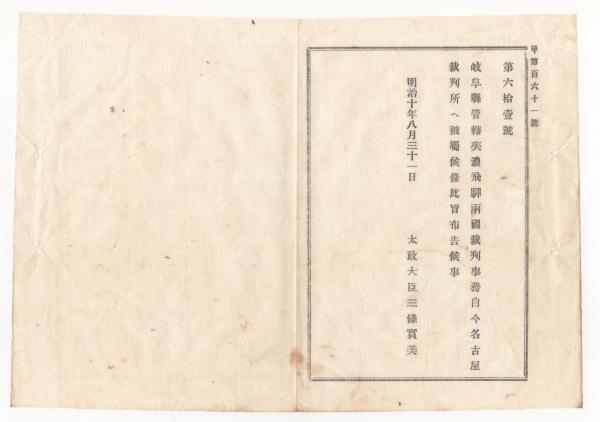 甲第百六十一號
第六拾壹號
岐阜縣管轄美濃飛驒兩國裁判事務自今名古屋
裁判所ヘ被屬候條此旨布告候事
明治十年八月三十一日
太政大臣三條實美